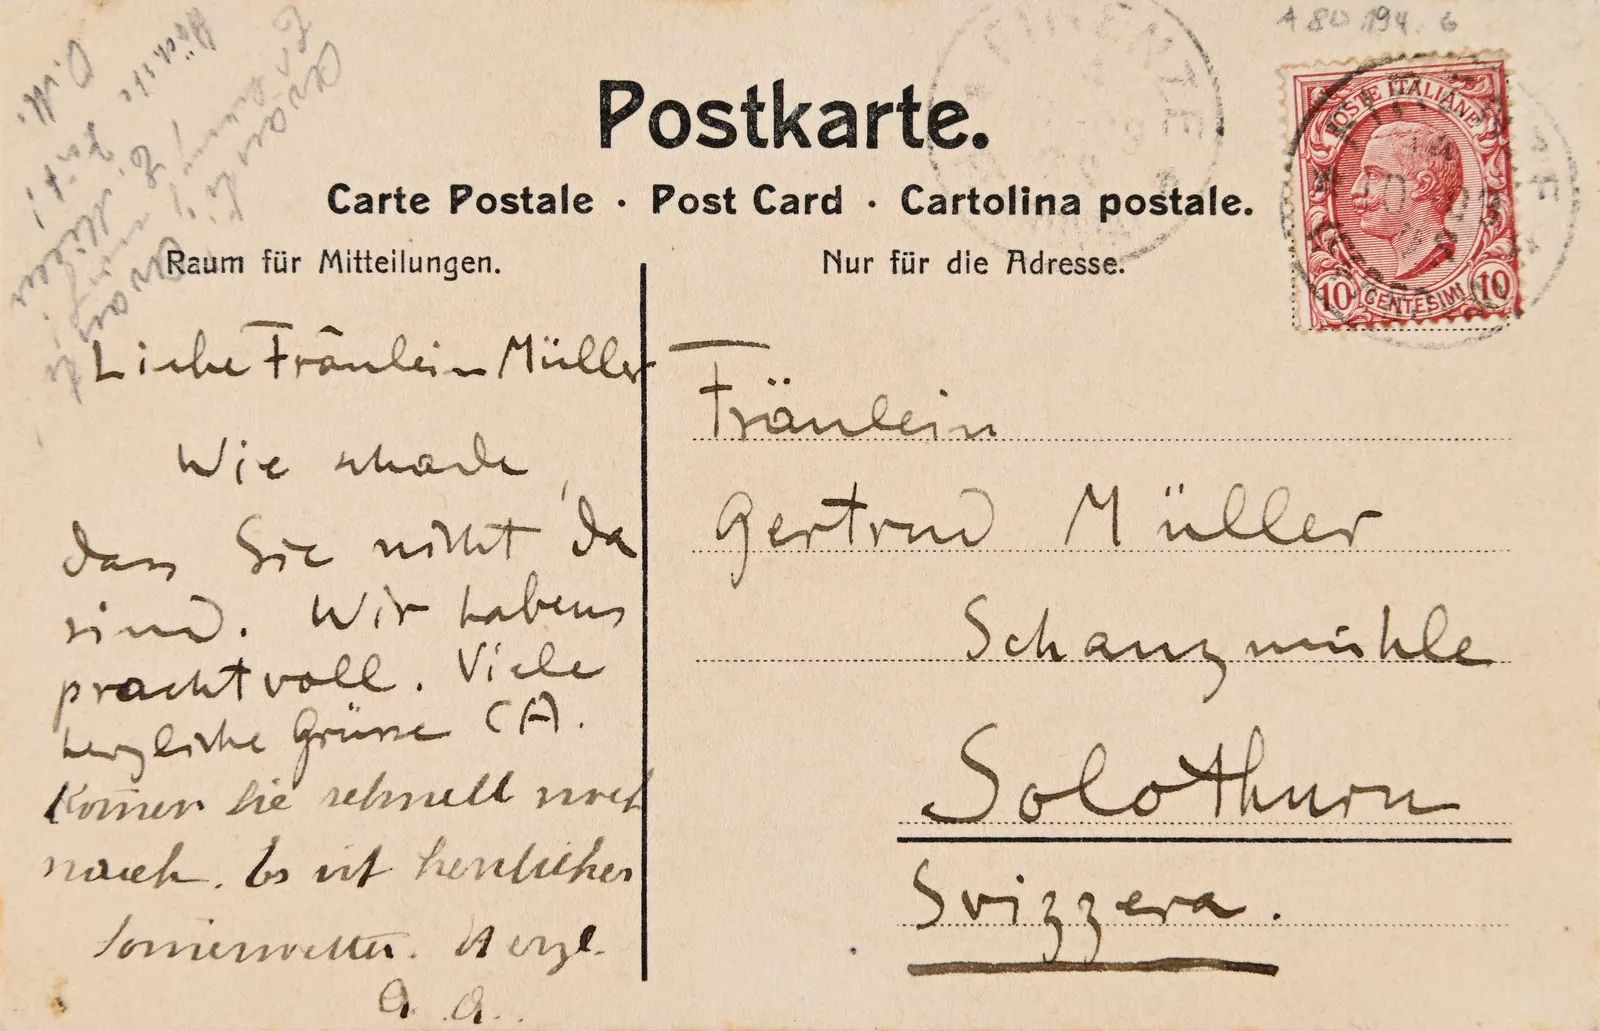 A 80 194. 6
FIRENZE
POSTE ITALIANE
10 CENTESIMI 10
Postkarte.
Carte Postale · Post Card · Cartolina postale.
Raum für Mitteilungen.
Nur für die Adresse.
Liebe Fräulein Müller
Wie schade,
dass Sie nicht da
sind. Wir habens
prachtvoll. Viele
herzliche Grüsse CA.
Kom̄en Sie schnell noch
nach. Es ist herrliches
Som̄erwetter. Herzl.
A. A.
Fräulein
Gertrud Müller
Schanzmühle
Solothurn
Svizzera.